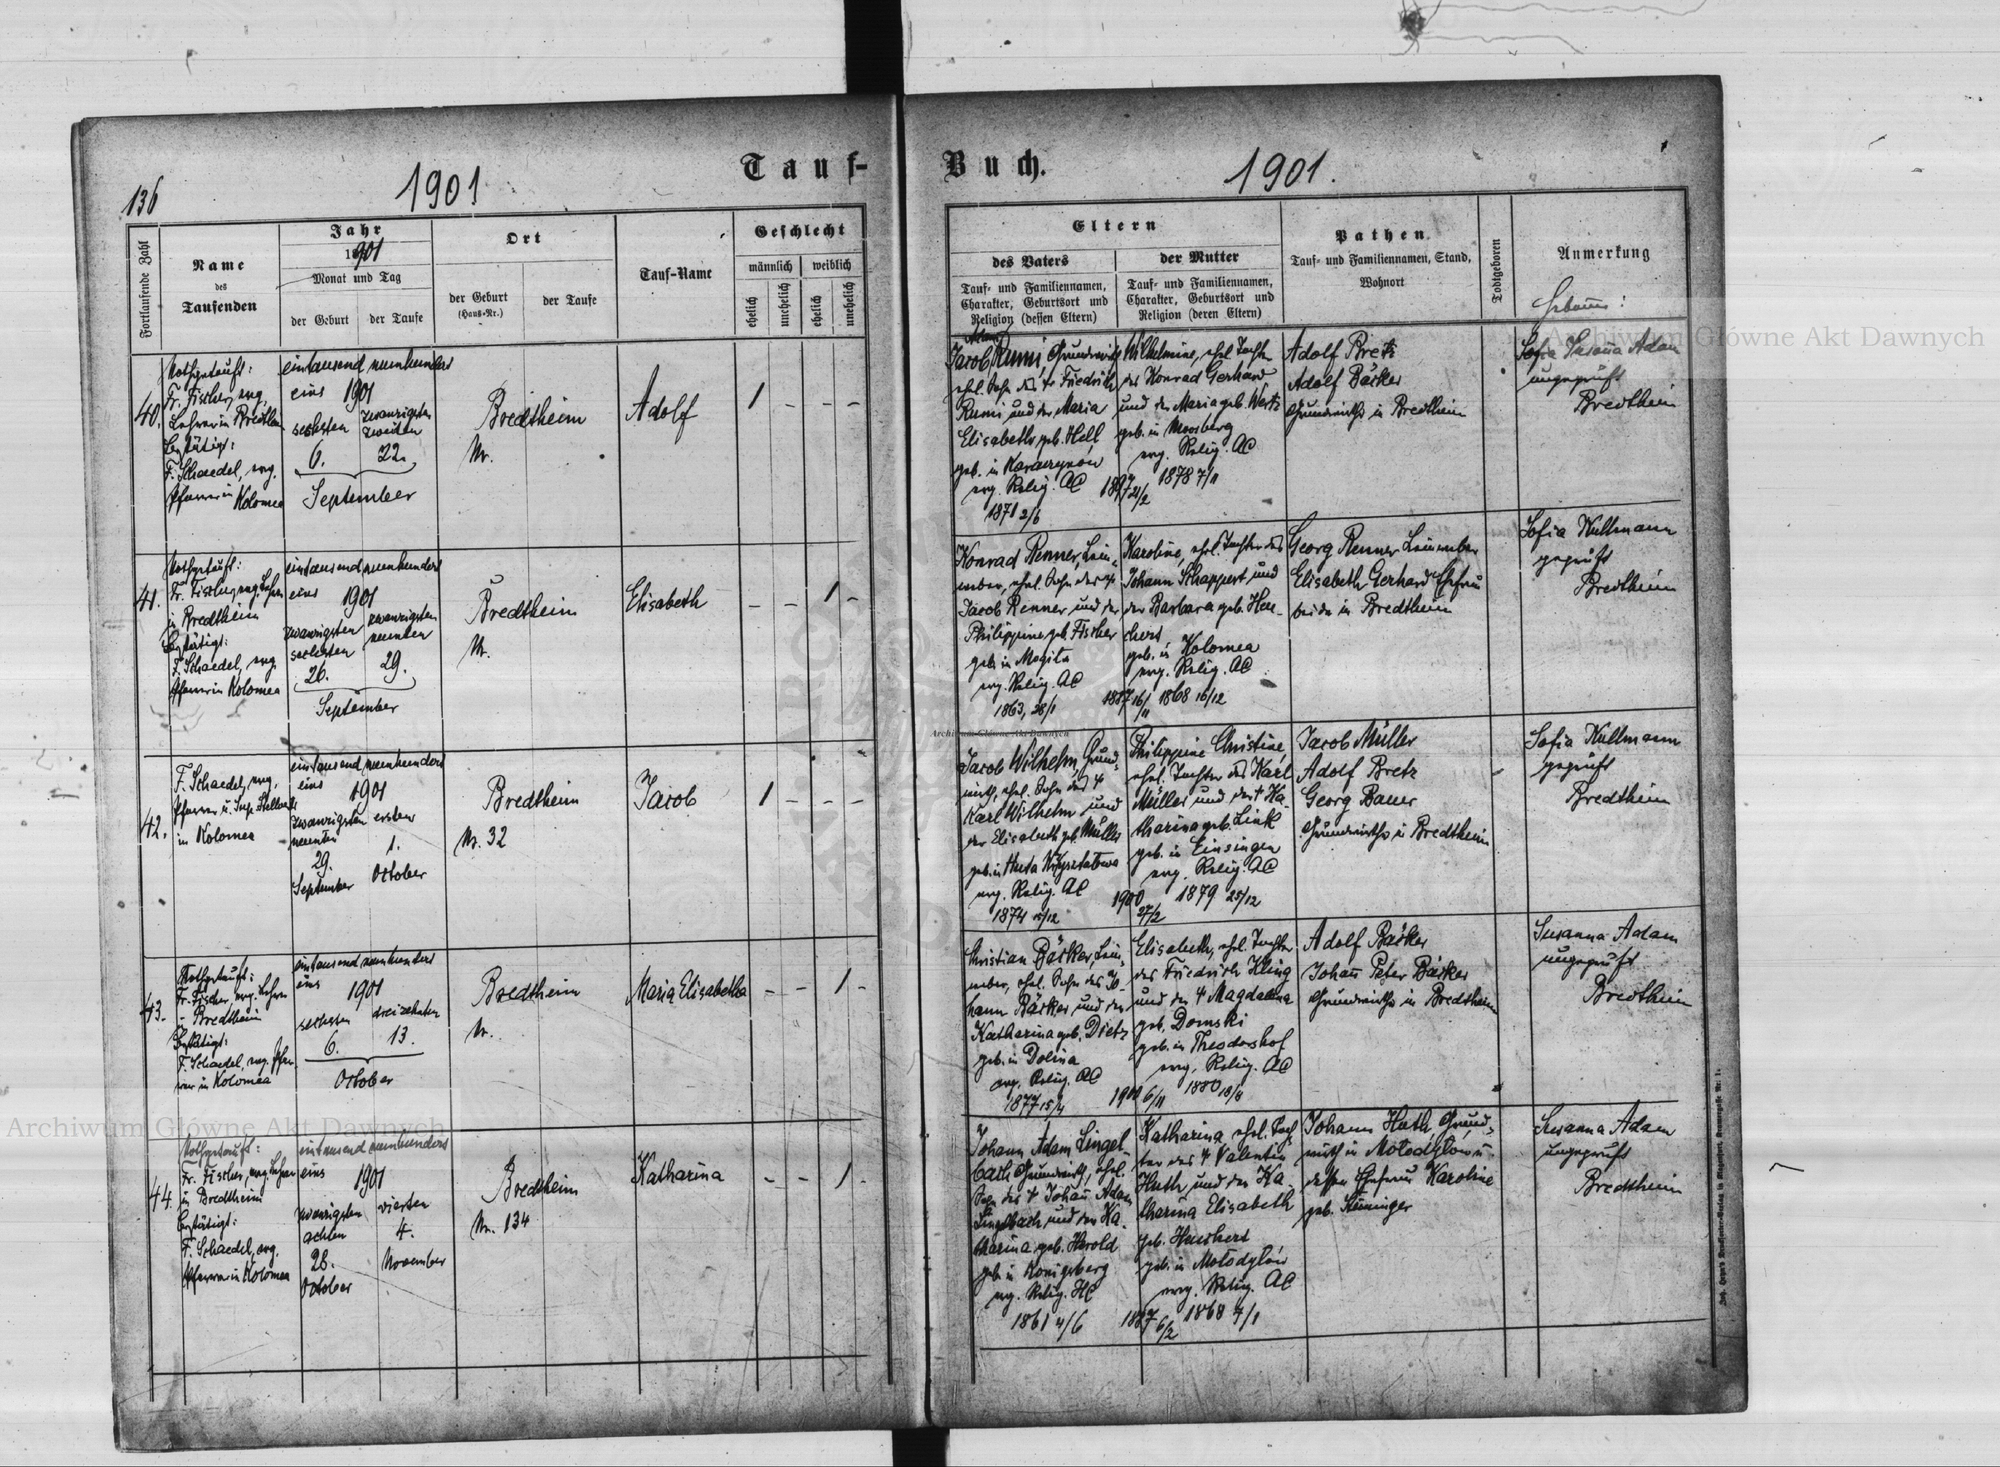 136
1901
Tauf-
Buch.
1901.
Fortlaufende Zahl
Name
des
Taufenden
Jahr
1901
Monat und Tag
der Geburt
der Taufe
Ort
der Geburt
(Haus-Nr.)
der Taufe
Tauf-Name
Geschlecht
männlich
weiblich
ehelich
unehelich
ehelich
unehelich
Eltern
des Vaters
Tauf- und Familiennamen,
Charakter, Geburtsort und
Religion (dessen Eltern)
der Mutter
Tauf- und Familiennamen,
Charakter, Geburtsort und
Religion (deren Eltern)
Pathen
Tauf- und Familiennamen, Stand,
Wohnort
Todtgeboren
Anmerkung
Hebamme:
40.
Nothgetauft:
Fr. Fischer, evg.
Lehrer in Bredtheim
Bestätigt:
F. Schaedel, evg.
Pfarrer in Kolomea
eintausend neunhundert
eins 1901
sechsten
zwanzigsten
zweiten
6.
22.
September
Bredtheim
Nr.
Adolf
1 - - -
Adam
Jacob Rumi, Grundwirth
ehel. Sohn des Friedrich
Rumi und der Maria
Elisabeth geb. Hell
geb. in Karaczynów
evg. Relig. AC
1871 2/6
Wilhelmine, ehel. Tocht.
des Konrad Gerhard
und der Maria geb. Wertz
geb. in Moosberg
evg. Relig. AC
1878 7/1
1897 21/2
Adolf Bretz
Adolf Bäcker
Grundwirthe in Bredtheim
Sofia Susanna Adam
ungeprüft
Bredtheim
41.
Nothgetauft:
Fr. Fischer, evg. Lehrer
in Bredtheim
Bestätigt:
F. Schaedel, evg.
Pfarrer in Kolomea
eintausend neunhundert
eins 1901
zwanzigsten
sechsten
zwanzigsten
neunten
26.
29.
September
Bredtheim
Nr.
Elisabeth
- - 1 -
Konrad Renner, Lein-
weber, ehel. Sohn des †
Jacob Renner, und der
Philippine geb. Fischer
geb. in Mogila
evg. Relig. AC
1863, 28/1
Karoline, ehel. Tochter des
Johann Schappert und
der Barbara geb. Heu-
chert
geb. in Kolomea
evg. Relig. AC
1887 16/11 1868 16/12
Georg Renner Leinweber
Elisabeth Gerhard Ehefrau
beide in Bredtheim
Sofia Kullmann
geprüft
Bredtheim
42.
F. Schaedel, evg.
Pfarrer u. Sup. Stellvertr.
in Kolomea
eintausend neunhundert
eins
1901
zwanzigsten ersten
neunten
1.
29.
September October
Bredtheim
Nr. 32
Jacob
1 - - -
Jacob Wilhelm, Grund-
wirth, ehel. Sohn des †
Karl Wilhelm und
der Elisabeth geb. Müller
evg. Relig. AC
1874 15/12
Philippine Christine,
ehel. Tochter des Karl
Müller und der † Ka-
tharina geb. Link
geb. in Einsingen
evg. Relig. AC
1900 27/2
1879 25/12
Jacob Müller
Adolf Bretz
Georg Bauer
Grundwirthe in Bredtheim
Sofia Kullmann
geprüft
Bredtheim
43.
Nothgetauft:
Fr. Fischer, evg. Lehrer
in Bredtheim
Bestätigt:
F. Schaedel, evg. Pfar-
rer in Kolomea
eintausend neunhundert
eins
1901
sechsten dreizehnten
6. 13.
October
Bredtheim
Nr.
Maria Elisabetha
- - 1 -
Christian Bäcker, Lein-
weber, ehel. Sohn des Jo-
hann Bäcker und der
Katharina geb. Dietz
geb. in Dolina
evg. Relig. AC
1877 15/4
Elisabeth, ehel. Tochter
des Friedrich Kling
und der † Magdalena
geb. Domski
geb. in Theodorshof
evg. Relig. AC
1900 6/11 1880 18/8
Adolf Bäcker
Johann Peter Bäcker
Grundwirthe in Bredtheim
Susanna Adam
ungeprüft
Bredtheim
44.
Nothgetauft:
Fr. Fischer, evg. Lehrer
in Bredtheim
Bestätigt:
F. Schaedel, evg.
Pfarrer in Kolomea
eintausend neunhundert
eins 1901
zwanzigsten vierten
achten
4.
28.
November
October
Bredtheim
Nr. 134
Katharina
- - 1 -
Johann Adam Lingel-
bach Grundwirth, ehel.
Sohn des † Johann Adam
Lingelbach und der Ka-
tharina geb. Herold
geb. in Königsberg
evg. Relig. HC
1861 4/6
Katharina, ehel. Toch-
ter des † Valentin
Huth und der Ka-
tharina Elisabeth
geb. Heuchert
geb. in Mołodyłów
evg. Relig. AC
1887 6/2 1868 7/1
Johann Huth Grund-
wirth in Mołodyłow u.
dessen Ehefrau Karoline
Susanna Adam
ungeprüft
Bredtheim
Archiwum Główne Akt Dawnych
Archiwum Główne Akt Dawnych
Archiwum Główne Akt Dawnych